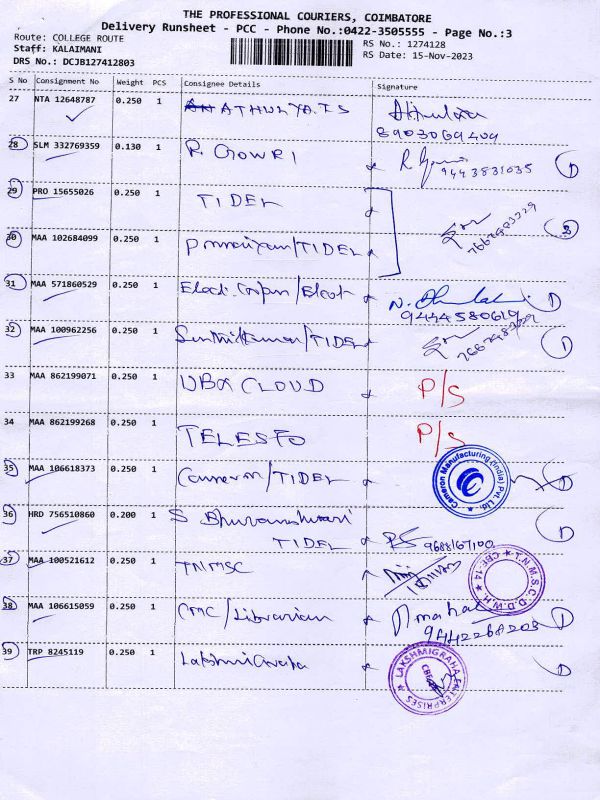 THE PROFESSIONAL COURIERS, COIMBATORE
Delivery Runsheet - PCC - Phone No.:0422-3505555 - Page No.:3
Route: COLLEGE ROUTE
Staff: KALAIMANI
DRS No.: DCJB127412803
RS No.: 1274128
RS Date: 15-Nov-2023
S No Consignment No Weight PCS Consignee Details Signature
27 NTA 12648787 0.250 1 ATHULYA.T.S
8903069409
28 SLM 332769359 0.130 1 R. GOWRI 9443831035 D
29 PRO 15655026 0.250 1 TIDEL
30 MAA 102684099 0.250 1 /TIDEL
31 MAA 571860529 0.250 1 /Elcot D
9444580619
32 MAA 100962256 0.250 1 Senthilkumar/TIDEL D
33 MAA 862199071 0.250 1 UBX CLOUD P/S
34 MAA 862199268 0.250 1 TELESTO P/S
35 MAA 106618373 0.250 1 Cameron/TIDEL D
Cameron Manufacturing (India) Pvt. Ltd.
36 HRD 756510860 0.200 1 S Bhuvaneshwari D
TIDEL 9688167100
37 MAA 100521612 0.250 1 TNMSC
T.N.M.S.C.D.D.W.H. CBE-14
38 MAA 106615059 0.250 1 CMC/Librarian D
9442268203
39 TRP 8245119 0.250 1 D
LAKSHMIGRAHA ENTERPRISES CBE